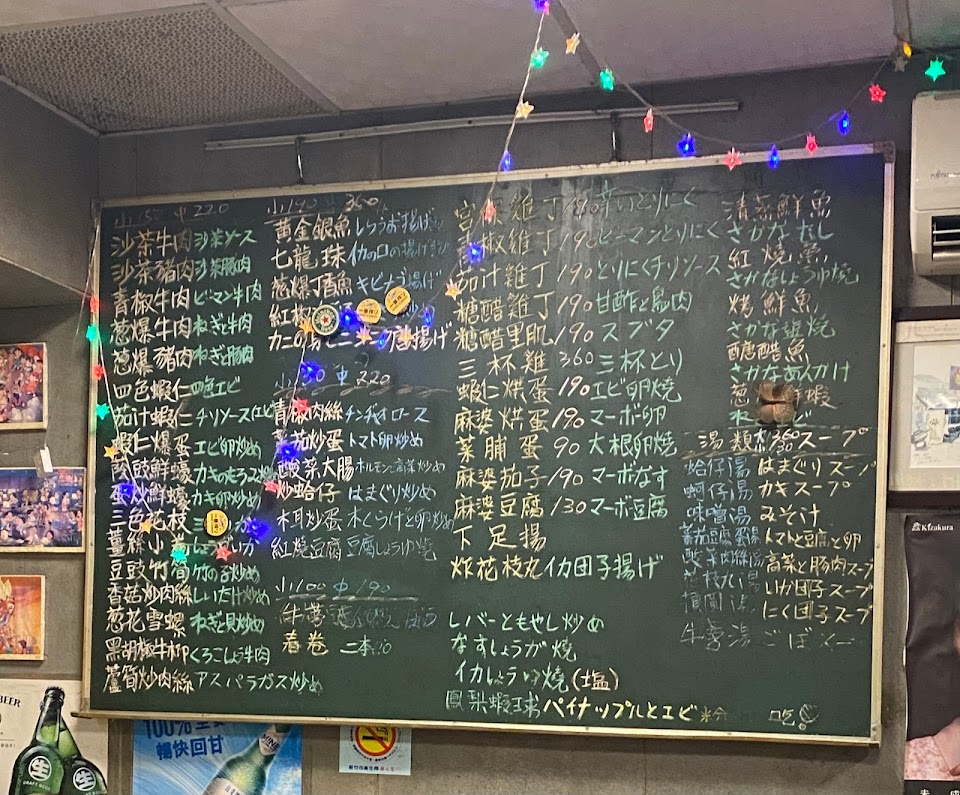 小150 中220
沙茶牛肉 沙茶ソース
沙茶豬肉 沙茶豚肉
青椒牛肉 ピーマン牛肉
葱爆牛肉 ねぎ牛肉
葱爆豬肉 ねぎと豚肉
四色蝦仁 四色エビ
茄汁蝦仁 チリソース(エビ
蝦仁爆蛋 エビ卵炒め
豉鮮蠔
鮮蠔 カキ卵炒め
三色花枝
薑絲小
豆豉竹筍 竹の子炒め
香菇炒肉絲 しいたけ炒め
葱花雪螺 ねぎと貝炒め
黑胡椒牛柳 くろこしょう牛肉
蘆筍炒肉絲 アスパラガス炒め
小190 中360
黄金銀魚 しらうお揚げ
七龍珠 イカの口の揚げ
葱爆丁香魚 キビナゴ揚げ
紅椒
カニの 唐揚げ
中220
青椒肉絲 チンヂャオロース
茄炒蛋 トマト卵炒め
酸菜大腸 ホルモンと高菜炒め
炒蛤仔 はまぐり炒め
木耳炒蛋 木くらげと卵炒め
紅燒豆腐 豆腐しょうゆ焼
小100 中190
牛蒡
春卷 二本
宮保雞丁 190 辛いとりにく
青椒雞丁 190 ピーマンとりにく
茄汁雞丁 190 とりにくチリソース
糖醋雞丁 190 甘酢と鳥肉
糖醋里肌 190 スブタ
三杯雞 360 三杯とり
蝦仁烘蛋 190 エビ卵焼
麻婆烘蛋 190 マーボ卵
菜脯蛋 90 大根卵焼
麻婆茄子 190 マーボなす
麻婆豆腐 130 マーボ豆腐
下足揚
炸花枝丸 イカ団子揚げ
レバーともやし炒め
なすしょうが焼
イカしょうゆ焼(塩)
鳳梨蝦球 パイナップルとエビ
清蒸鮮魚
さかなむし
紅燒魚
さかなしょうゆ焼
烤鮮魚
さかな塩焼
醣醋魚
さかなあんかけ
葱 蝦
湯類 360 スープ
蛤仔湯 はまぐりスープ
蚵仔湯 カキスープ
味噌湯 みそ汁
蕃茄豆腐蛋湯 トマトと豆腐と卵
酸菜肉絲湯 高菜と豚肉スープ
花枝丸湯 いか団子スープ
貢圓湯 にく団子スープ
牛蒡湯 ごぼ
吃
BEER
生
DRAFT BEER
生
100%
暢快回甘
Kizakura